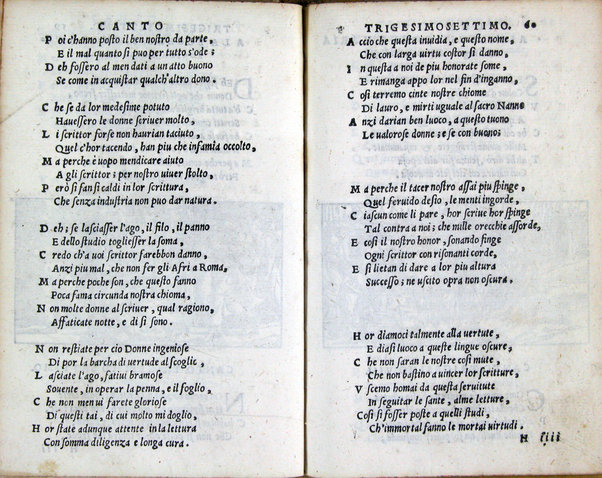 CANTO
P oi c'hanno posto il ben nostro da parte,
E il mal quanto si puo per tutto s'ode;
D eh fossero al men dati a un atto buono
Se come in acquistar qualch'altro dono.
C he se da lor medesime potuto
Hauessero le donne scriuer molto,
L i scrittor forse non haurian taciuto,
Quel c'hor tacendo, han piu che infamia occolto,
M a perche è uopo mendicare aiuto
A gli scrittor; per nostro uiuer stolto,
P erò si fan si caldi in lor scrittura,
Che senza industria non puo dar natura.
D eh; se lasciasser l'ago, il filo, il panno
E dello studio togliesser la soma,
C redo ch'a uoi scrittor farebbon danno,
Anzi piu mal, che non fer gli Afri a Roma,
M a perche poche son, che questo fanno
Poca fama circunda nostra chioma,
N on molte donne al scriuer, qual ragiono,
Affaticate notte, e di si sono.
N on restiate per cio Donne ingeniose
Di por la barcha di uertude al scoglio,
L asciate l'ago, fatiui bramose
Souente, in operar la penna, e il foglio,
C he non men ui farete gloriose
Di questi tai, di cui molto mi doglio,
H or state adunque attente in la lettura
Con somma diligenza e longa cura.
TRIGESIMOSETTIMO. 60
A ccio che questa inuidia, e questo nome,
Che con larga uirtu costor si danno,
I n questa a noi de piu honorate some,
E rimanga appo lor nel fin d'inganno,
C osi terremo cinte nostre chiome
Di lauro, e mirti uguale al sacro Nanno
A nzi darian ben luoco, a questo tuono
Le ualorose donne; e se con buono;
M a perche il tacer nostro assai piu spinge,
Quel feruido desio, le menti ingorde,
C iascun come li pare, hor scriue hor spinge
Tal contra a noi; che mille orecchie assorde,
E cosi il nostro honor, sonando finge
Ogni scrittor con risonanti corde,
E si lietan di dare a lor piu altura
Successo; ne uscito opra non oscura.
H or diamoci talmente alla uertute,
E diasi luoco a queste lingue oscure,
C he non saran le nostre cosi mute,
Che non bastino a uincer lor scritture,
V scemo homai da questa seruitute
In seguitar le sante, alme letture,
C osi si fosser poste a quelli studi,
Ch'immortal fanno le mortai uirtudi.
H iiii